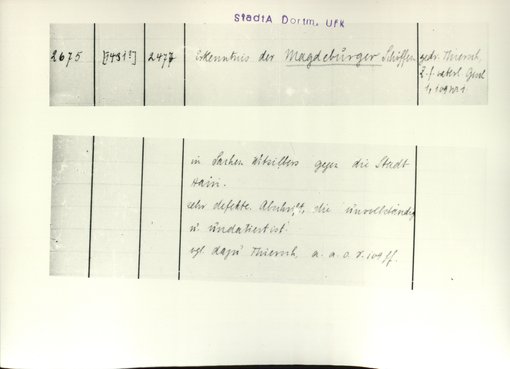 StadtA Dortm. UfK
2675 [1481?] 2477 Erkenntnis der Magdeburger Schöffen gedr. Thiersch,
Z. f. vaterl. Gesch
1, 109 Nr 1
in Sachen gegen die Stadt
Hain.
sehr defekte Abschrift, die unvollständig
u undatiert ist
vgl. dazu Thiersch, a. a. O. S. 104 ff.